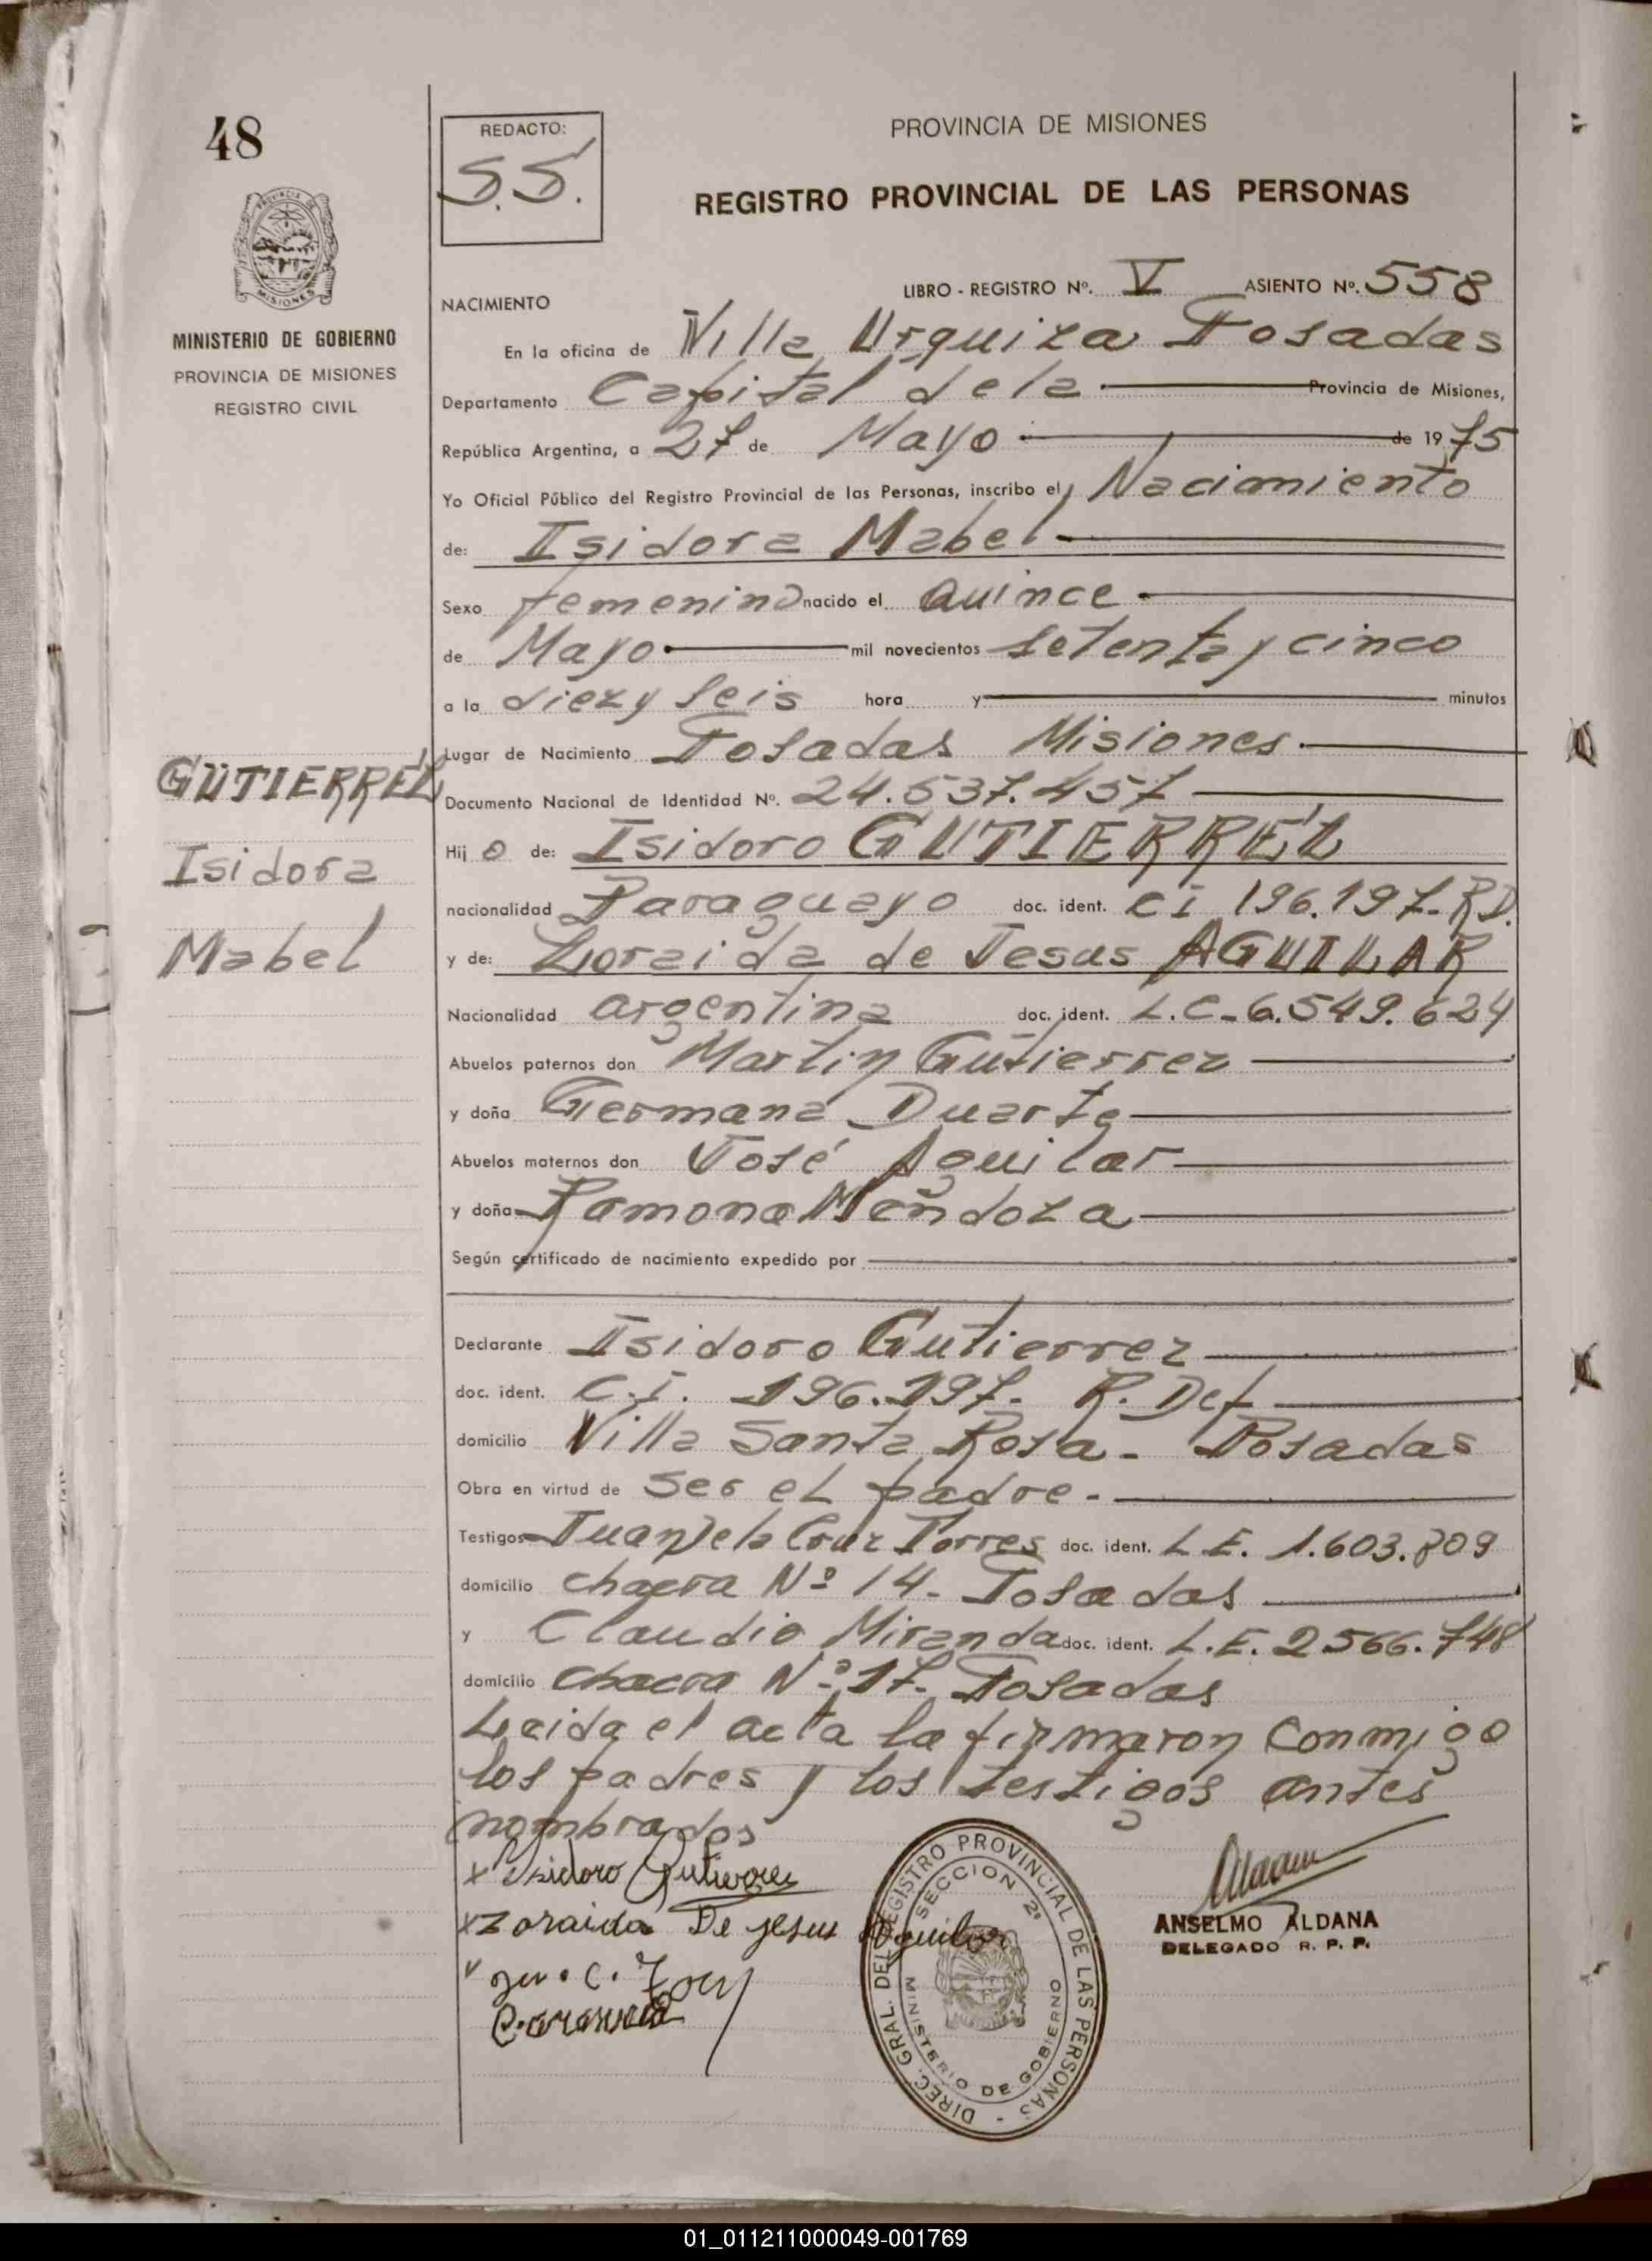 48
REDACTO:
S.S.
PROVINCIA DE MISIONES
REGISTRO PROVINCIAL DE LAS PERSONAS
MISIONES
MINISTERIO DE GOBIERNO
PROVINCIA DE MISIONES
REGISTRO CIVIL
LIBRO - REGISTRO Nº. V ASIENTO Nº. 558
NACIMIENTO
En la oficina de Villa Urquiza Posadas
Departamento Capital de la Provincia de Misiones,
República Argentina, a 27 de Mayo de 1975
Yo Oficial Público del Registro Provincial de las Personas, inscribo el Nacimiento
de: Isidora Mabel
Sexo femenino nacido el Quince
de Mayo mil novecientos setenta y cinco
a la diez y seis hora y minutos
Lugar de Nacimiento Posadas Misiones.
GUTIERREZ
Isidora
Mabel
Documento Nacional de Identidad Nº. 24.537.457
Hij o de: Isidoro GUTIERREZ
nacionalidad Paraguayo doc. ident. CI 196.197-R.D.
y de: Zoraida de Jesus AGUILAR
Nacionalidad argentina doc. ident. L.C-6.549.624
Abuelos paternos don Martin Gutierrez
y doña Germana Duarte
Abuelos maternos don José Aguilar
y doña Ramona Mendoza
Según certificado de nacimiento expedido por
Declarante Isidoro Gutierrez
doc. ident. C.I. 196.197- R. Def
domicilio Villa Santa Rosa - Posadas
Obra en virtud de ser el padre.-
Testigos Juan De la Cruz Torres doc. ident. L.E. 1.603.809
domicilio chacra Nº 14- Posadas
y Claudio Miranda doc. ident. L.E. 2566.748
domicilio chacra Nº 17- Posadas
Leida el acta la firmaron conmigo
los padres y los testigos antes
nombrados
x Isidoro Gutierrez
x Zoraida De jesus Aguilar
DIREC. GRAL. DEL REGISTRO PROVINCIAL DE LAS PERSONAS -
SECCION 2ª
MINISTERIO DE GOBIERNO
ANSELMO ALDANA
DELEGADO R. P. P.
01_011211000049-001769